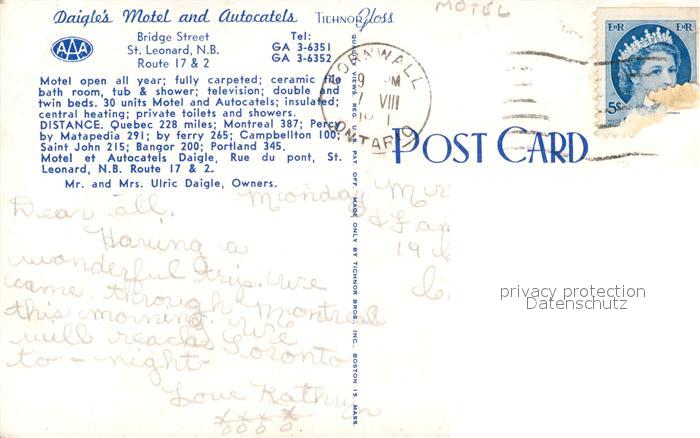 Daigle's Motel and Autocatels
TICHNOR Gloss
MOTEL
AAA
Bridge Street
St. Leonard, N.B.
Route 17 & 2
Tel:
GA 3-6351
GA 3-6352
Motel open all year; fully carpeted; ceramic tile
bath room, tub & shower; television; double and
twin beds. 30 units Motel and Autocatels; insulated;
central heating; private toilets and showers.
DISTANCE. Quebec 228 miles; Montreal 387; Perce
by Matapedia 291; by ferry 265; Campbellton 100;
Saint John 215; Bangor 200; Portland 345.
Motel et Autocatels Daigle, Rue du pont, St.
Leonard, N.B. Route 17 & 2.
Mr. and Mrs. Ulric Daigle, Owners.
QUALITY VIEWS, REG. U.S. PAT. OFF. MADE ONLY BY TICHNOR BROS., INC., BOSTON 15, MASS.
CORNWALL
9 PM
VIII
ONTARIO
EIIR EIIR
5¢
POST CARD
Monday
Dear all,
Having a
wonderful trip. We
came through Montreal
this morning. We
will reach Toronto
to-night
Love Kathryn
xxxx
oooo
19
privacy protection
Datenschutz